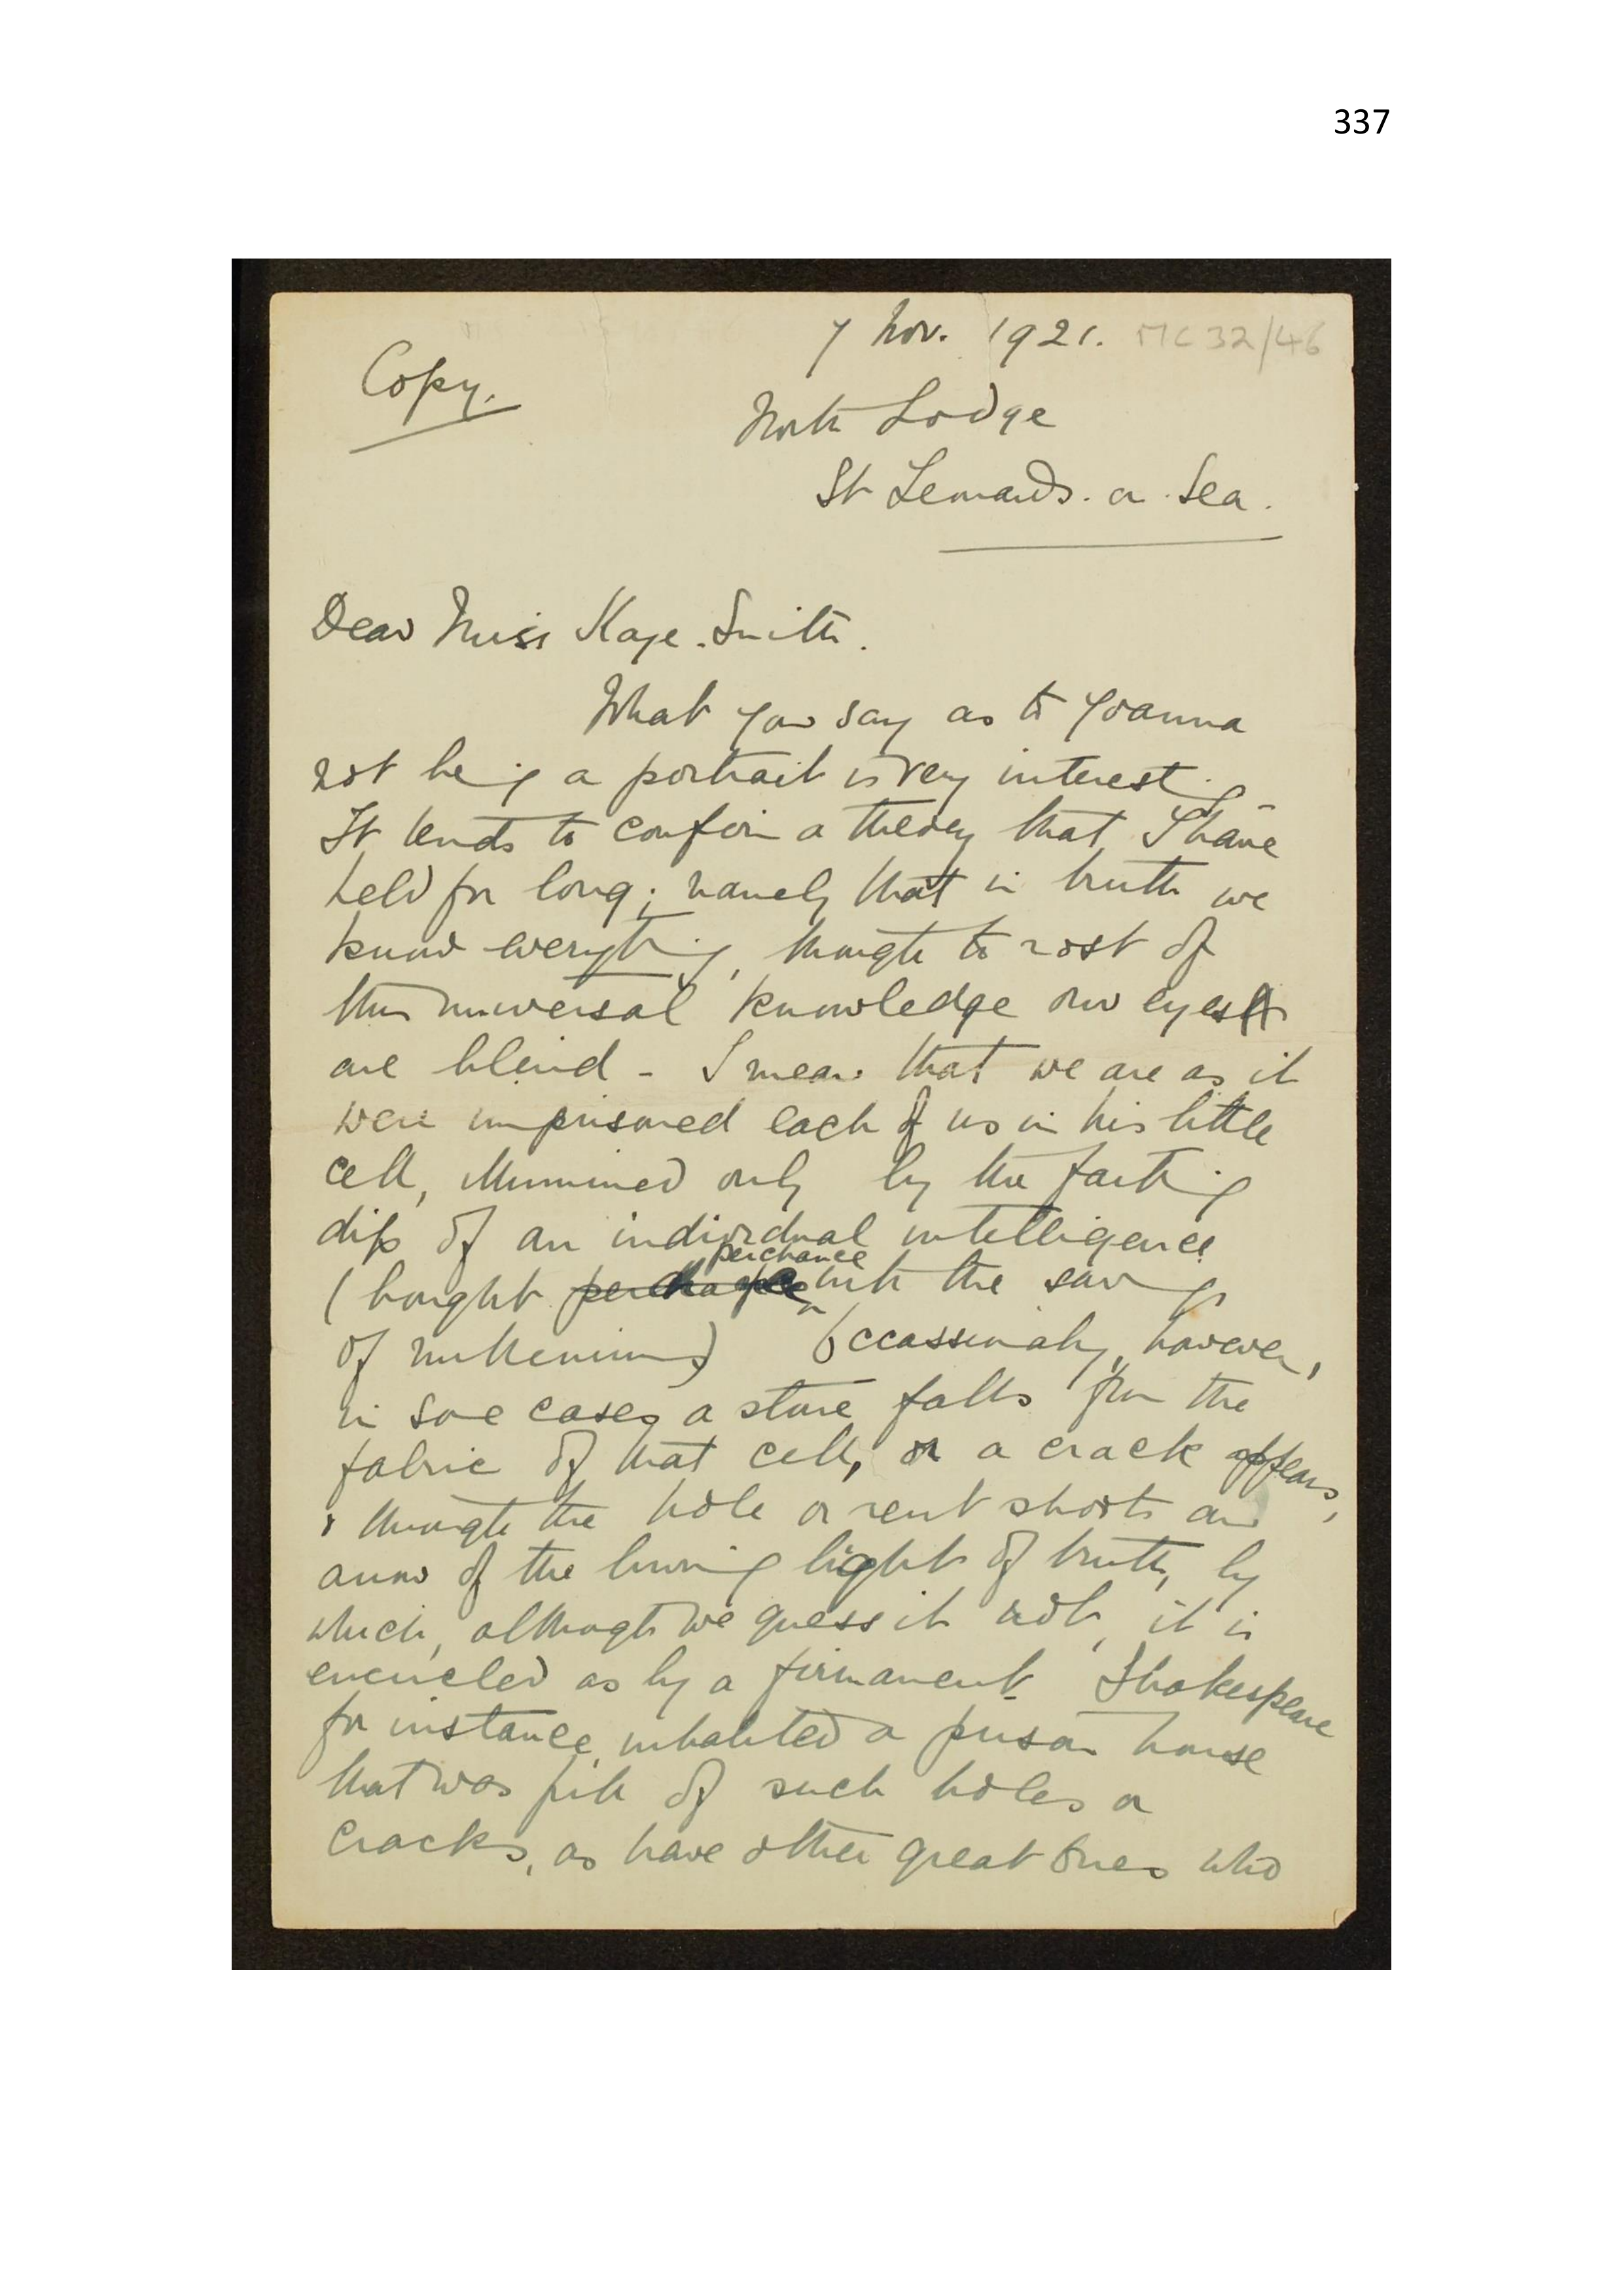 337
7 Nov. 1921. MC 32/46
Copy.
North Lodge
St Leonards. on. Sea.
Dear Miss Kaye-Smith.
What you say as to Joanna
not being a portrait is very interesting.
It tends to confirm a theory that I have
held for long; namely that in truth we
know everything, though to most of
this universal knowledge our eyes
are blind - I mean that we are as it
were imprisoned each of us in his little
cell, illumined only by the farthing
dip of an individual intelligence
perchance
(bought perchance with the savings
of millenniums) Occassionally, however,
in some cases a stone falls from the
fabric of that cell, or a crack appears,
& through the hole or rent shoots an
arrow of the living light of truth, by
which, although we guess it not, it is
encircled as by a firmament. Shakespeare
for instance inhabited a prison house
that was full of such holes or
cracks, as have other great ones who